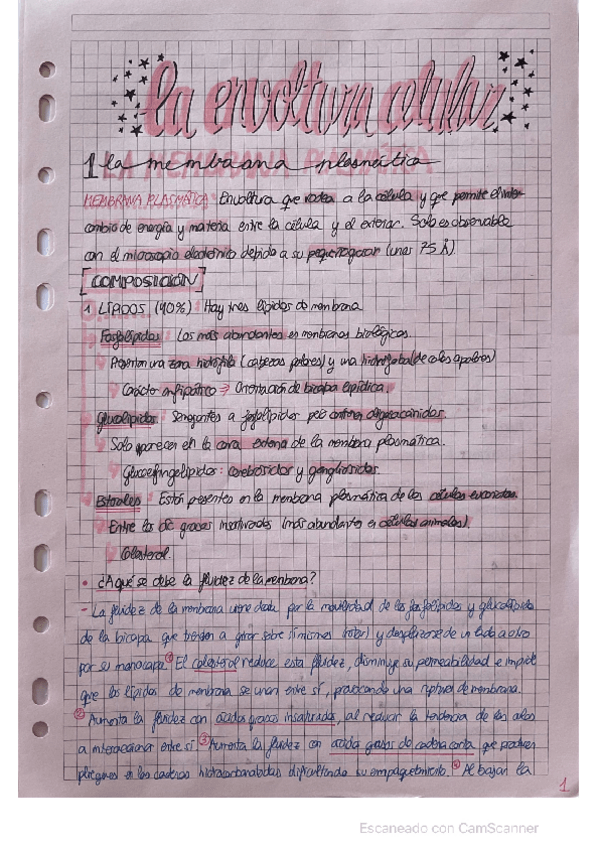 la envoltura celular
1 la membrana plasmática
MEMBRANA PLASMÁTICA: Envoltura que rodea a la célula y que permite el inter-
cambio de energía y materia entre la célula y el exterior. Solo es observable
con el microscopio electrónico debido a su pequeño grosor (unos 75 Å).
COMPOSICIÓN
1 LÍPIDOS (40%): Hay tres lípidos de membrana
Fosfolípidos: Los más abundantes en membranas biológicas.
Presentan una zona hidrófila (cabezas polares) y una hidrófoba (de colas apolares)
Carácter anfipático → Orientación de bicapa lipídica.
Glucolípidos: Semejantes a fosfolípidos pero contienen oligosacáridos.
Solo aparecen en la cara externa de la membrana plasmática.
Glucoesfingolípidos: cerebrósidos y gangliósidos.
Esteroles: Están presentes en la membrana plasmática de las células eucariotas.
Entre los ác. grasos insaturados (más abundantes en células animales).
Colesterol.
• ¿A qué se debe la fluidez de la membrana?
- La fluidez de la membrana viene dada por la movilidad de los fosfolípidos y glucolípidos
de la bicapa que tienden a girar sobre sí mismos (rotar) y desplazarse de un lado a otro
por su monocapa. ① El colesterol reduce esta fluidez, disminuye su permeabilidad e impide
que los lípidos de membrana se unan entre sí, provocando una ruptura de membrana.
② Aumenta la fluidez con ácidos grasos insaturados, al reducir la tendencia de las colas
a interaccionar entre sí. ③ Aumenta la fluidez con ácidos grasos de cadena corta que
pliegues en las cadenas hidrocarbonadas dificultando su empaquetamiento. ④ Al bajar la
1
Escaneado con CamScanner